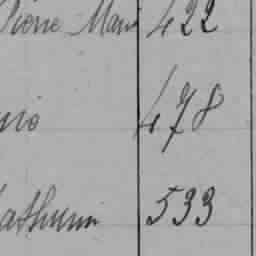 Pierre Marie 422
nio 478
athurin 533